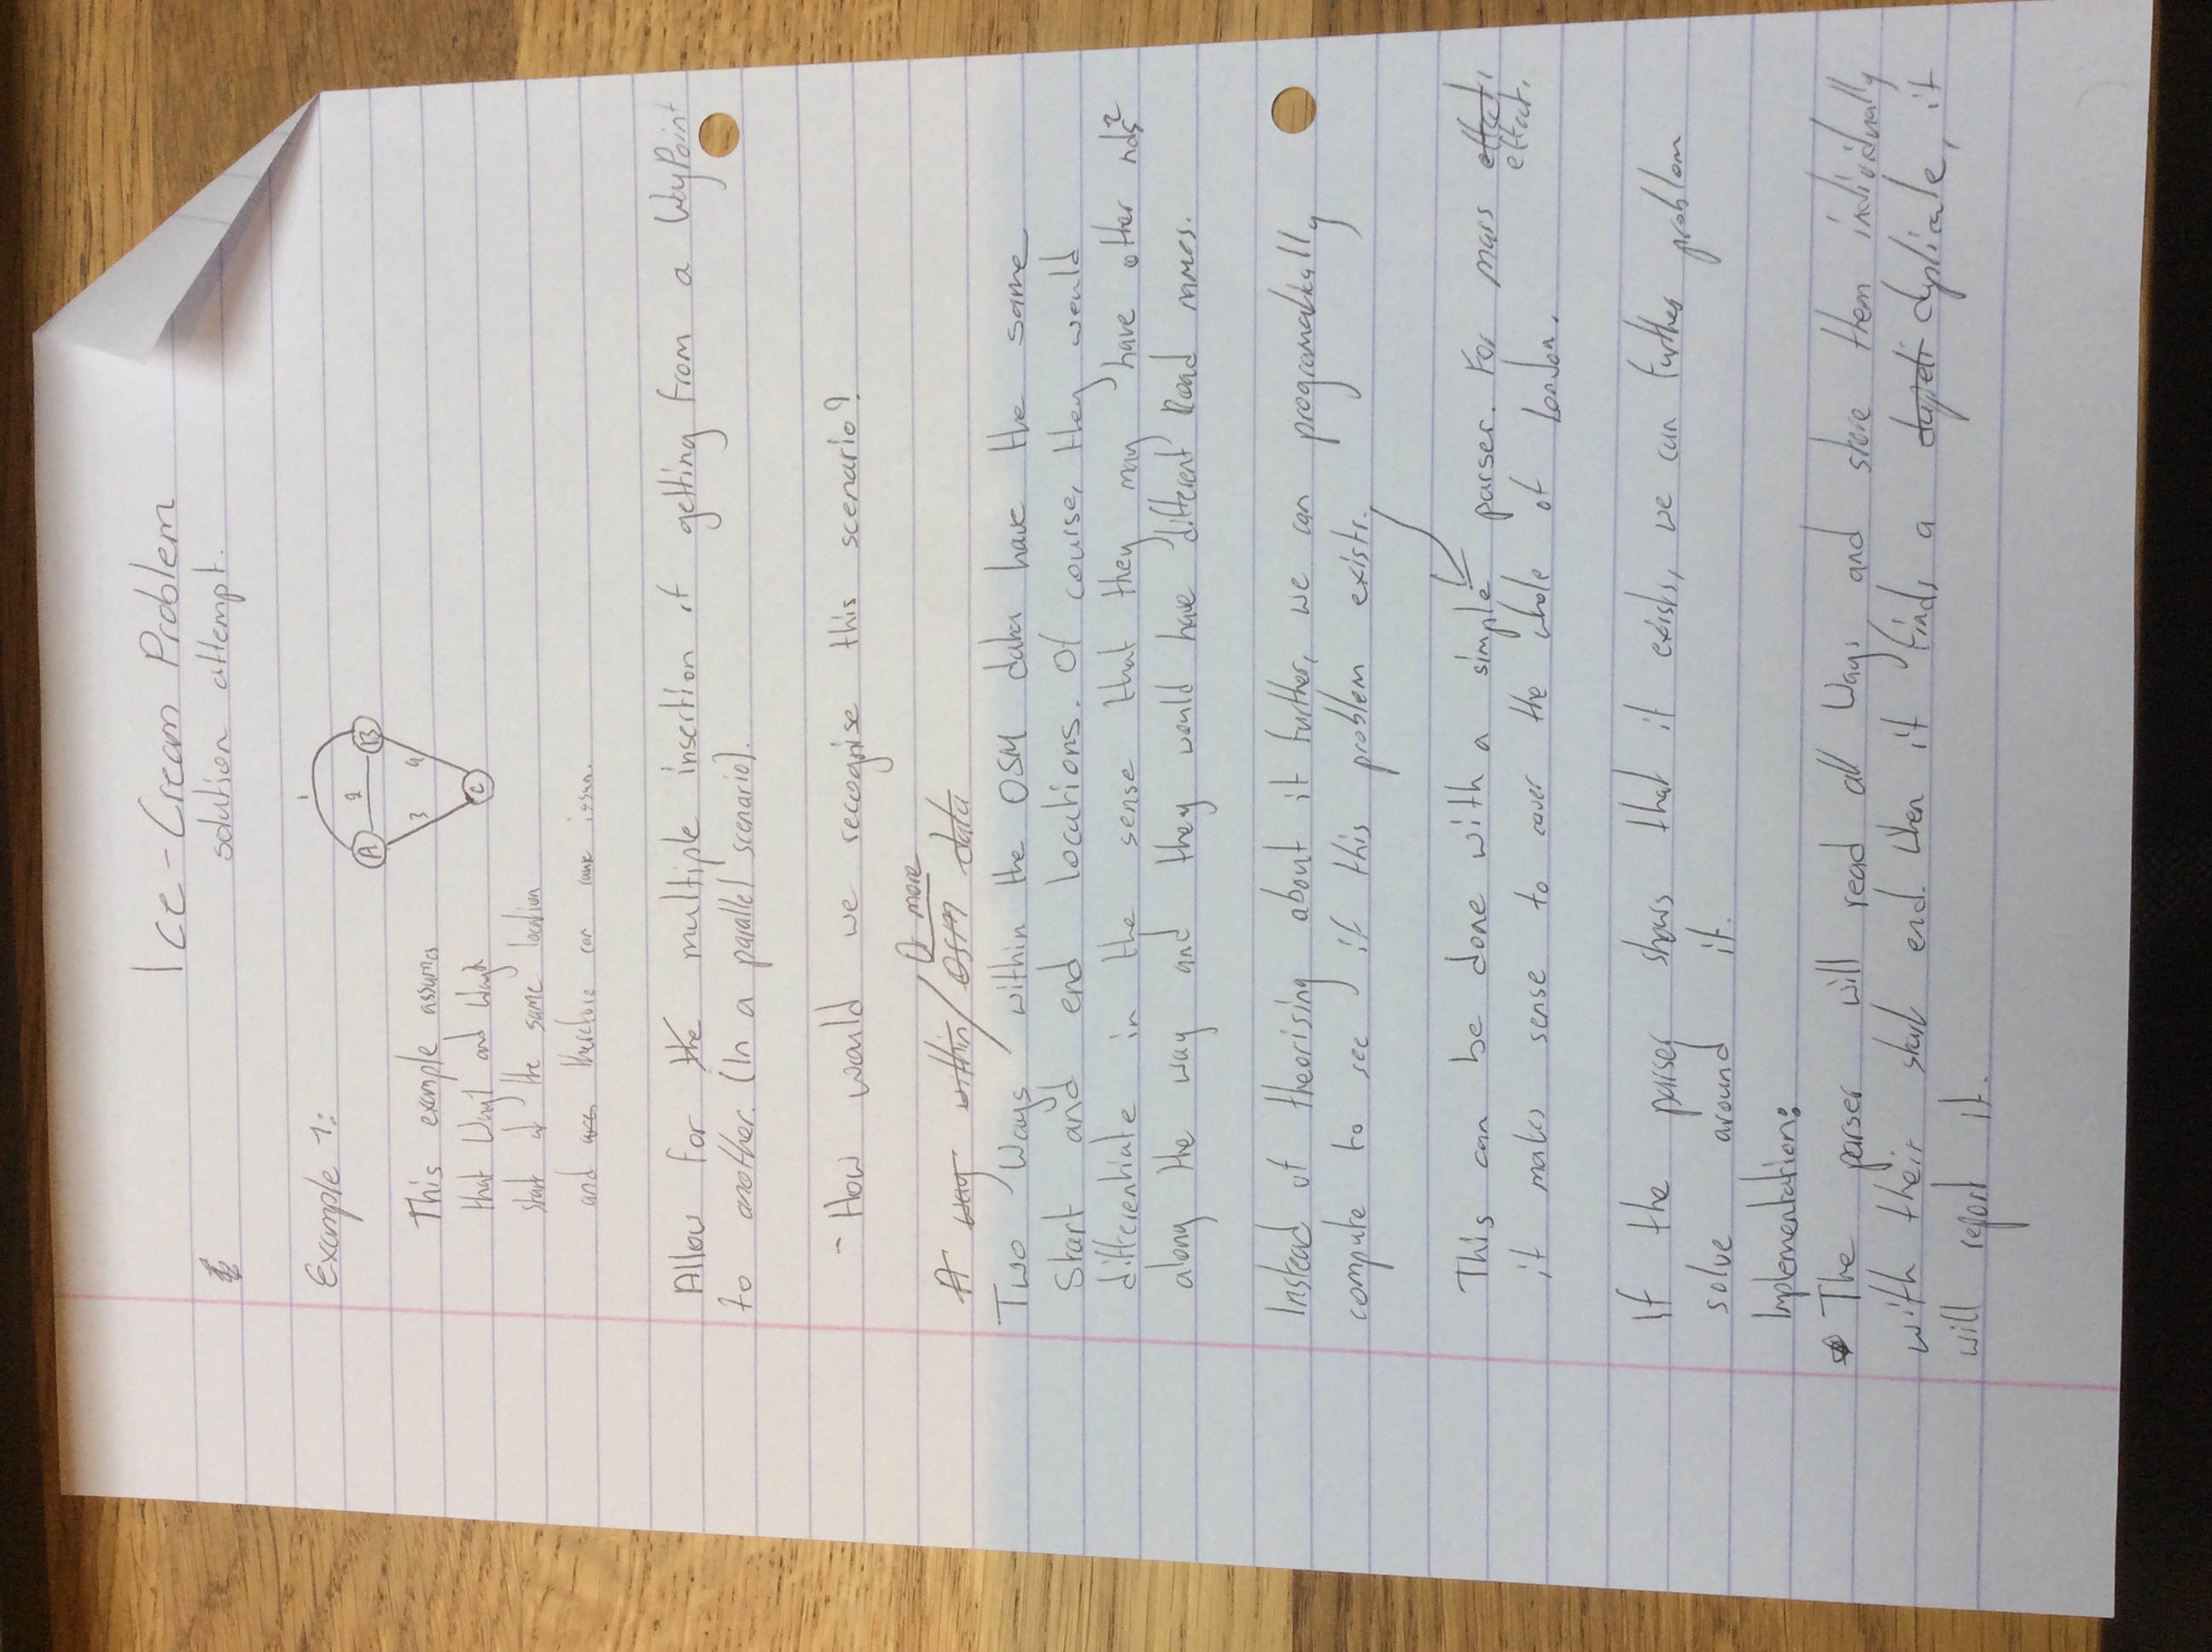 Ice-Cream Problem
solution attempt.
Example 1:
1
A 2 B
3 4
C
This example assumes
that Way1 and Way2
start at the same location
and therefore can cause issues.
Allow for the multiple insertion of getting from a WayPoint
to another. (In a parallel scenario).
- How would we recognise this scenario?
Or more
A way within OSM data
Two Ways within the OSM data have the same
start and end locations. Of course, they would
differentiate in the sense that they may have other nds
along the way and they would have different Road names.
Instead of theorising about it further, we can programatically
compute to see if this problem exists.
This can be done with a simple parser. For mass effect,
effect,
it makes sense to cover the whole of London.
If the parser shows that it exists, we can further problem
solve around it.
Implementation:
The parser will read all Ways and store them individually
with their start end. When it finds a duplicate, it
will report it.